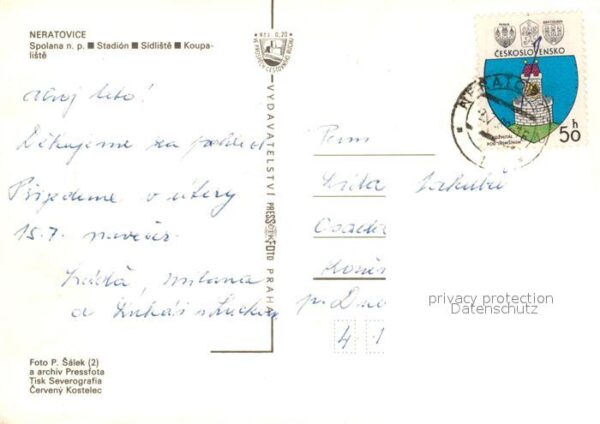 NERATOVICE
Spolana n. p. ■ Stadión ■ Sídliště ■ Koupa-
liště
Ahoj teto!
Děkujeme za pohled
Přijedeme v úterý
15.7. navečer
Láďa, Milena
a Lukáš
VYDAVATELSTVÍ PRESSFOTO PRAHA
Kčs 0,20
ČESKOSLOVENSKO
50 h
NERATO
Paní
Lída Jakubů
Osada
4 1
privacy protection
Datenschutz
Foto P. Šálek (2)
a archiv Pressfota
Tisk Severografia
Červený Kostelec